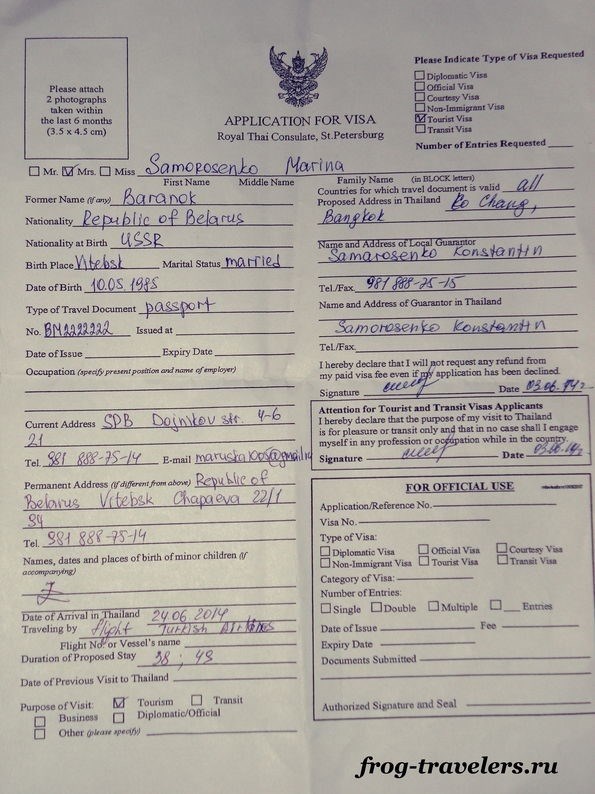 Please attach
2 photographs
taken within
the last 6 months
(3.5 x 4.5 cm)
APPLICATION FOR VISA
Royal Thai Consulate, St.Petersburg
Please Indicate Type of Visa Requested
Diplomatic Visa
Official Visa
Courtesy Visa
Non-Immigrant Visa
Tourist Visa
Transit Visa
Number of Entries Requested
Mr. Mrs. Miss Samorosenko Marina
First Name Middle Name Family Name (in BLOCK letters)
Former Name (if any) Baranok
Nationality Republic of Belarus
Nationality at Birth USSR
Birth Place Vitebsk Marital Status married
Date of Birth 10.05.1985
Type of Travel Document passport
No. BM2222222 Issued at
Date of Issue Expiry Date
Occupation (specify present position and name of employer)
Current Address SPB Dojnikov str. 4-6
21
Tel. 981 888-75-14 E-mail
Permanent Address (if different from above) Republic of
Belarus Vitebsk Chapaeva 22/1
94
Tel. 981 888-75-14
Names, dates and places of birth of minor children (if
accompanying)
Date of Arrival in Thailand 24.06 2014
Traveling by flight Turkish Airlines
Flight No. or Vessel's name
Duration of Proposed Stay 38 ; 43
Date of Previous Visit to Thailand
Purpose of Visit: Tourism Transit
Business Diplomatic/Official
Other (please specify)
Countries for which travel document is valid all
Proposed Address in Thailand Ko Chang,
Bangkok
Name and Address of Local Guarantor
Samarosenko Konstantin
Tel./Fax. 981 888-75-15
Name and Address of Guarantor in Thailand
Samorosenko Konstantin
Tel./Fax.
I hereby declare that I will not request any refund from
my paid visa fee even if my application has been declined.
Signature Date
Attention for Tourist and Transit Visas Applicants
I hereby declare that the purpose of my visit to Thailand
is for pleasure or transit only and that in no case shall I engage
myself in any profession or occupation while in the country.
Signature Date
FOR OFFICIAL USE
Application/Reference No.
Visa No.
Type of Visa:
Diplomatic Visa Official Visa Courtesy Visa
Non-Immigrant Visa Tourist Visa Transit Visa
Category of Visa:
Number of Entries:
Single Double Multiple Entries
Date of Issue Fee
Expiry Date
Documents Submitted
Authorized Signature and Seal
frog-travelers.ru